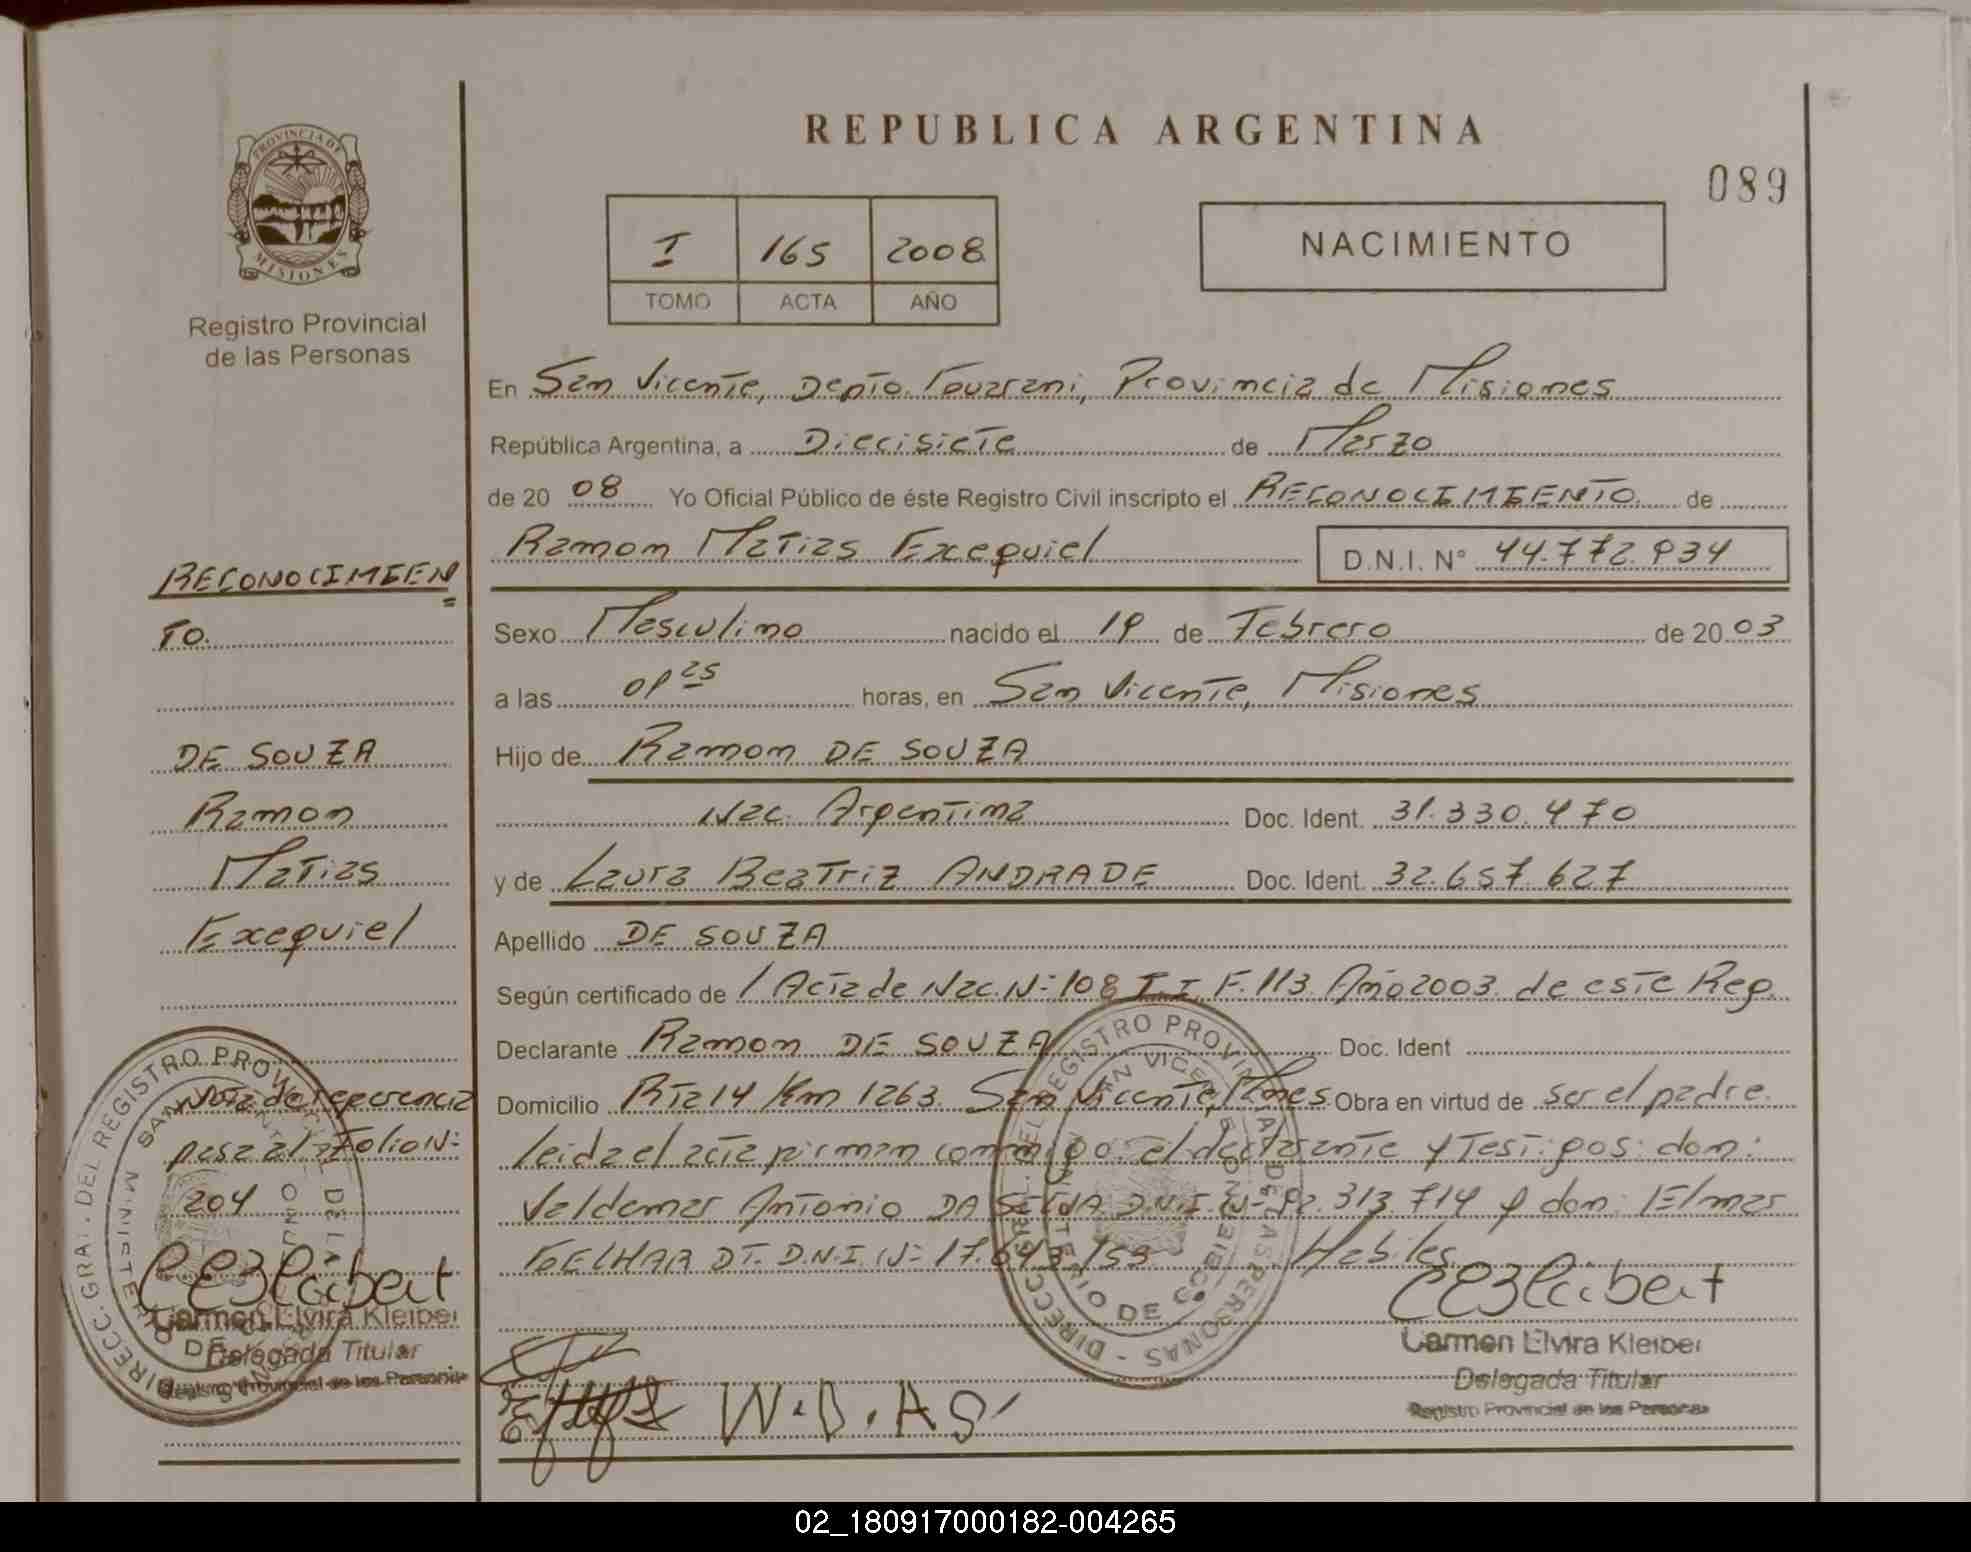 REPUBLICA ARGENTINA
089
PROVINCIA DE
MISIONES
Registro Provincial
de las Personas
I 165 2008
TOMO ACTA AÑO
NACIMIENTO
En San Vicente, Depto. Guarani, Provincia de Misiones
República Argentina, a Diecisiete de Marzo
de 20 08 Yo Oficial Público de éste Registro Civil inscripto el RECONOCIMIENTO de
Ramon Matias Exequiel D.N.I. N° 44.772.934
Sexo Masculino nacido el 19 de Febrero de 20 03
a las 09 25 horas, en San Vicente, Misiones
Hijo de Ramon DE SOUZA
Nac. Argentina Doc. Ident. 31.330.470
y de Laura Beatriz ANDRADE Doc. Ident. 32.657.627
Apellido DE SOUZA
Según certificado de / Acta de Nac. Nº 108 T. I F. 113 Año 2003 de este Reg.
Declarante Ramon DE SOUZA Doc. Ident
Domicilio Rta 14 Km 1263. San Vicente, Mnes Obra en virtud de ser el padre.
leida el acta firman conmigo el declarante y Testigos: don:
Valdemar Antonio DA SILVA D.N.I. Nº 92.313.714 y don: Elmar
D.N.I. Nº 17. 153 Habiles.
Carmen Elvira Kleiber
Delegada Titular
Registro Provincial de las Personas
W.D.AS
RECONOCIMIEN
TO.
DE SOUZA
Ramon
Matias
Exequiel
Nota de referencia
pasa al Folio Nº
204
Carmen Elvira Kleiber
Delegada Titular
Registro Provincial de las Personas
02_180917000182-004265